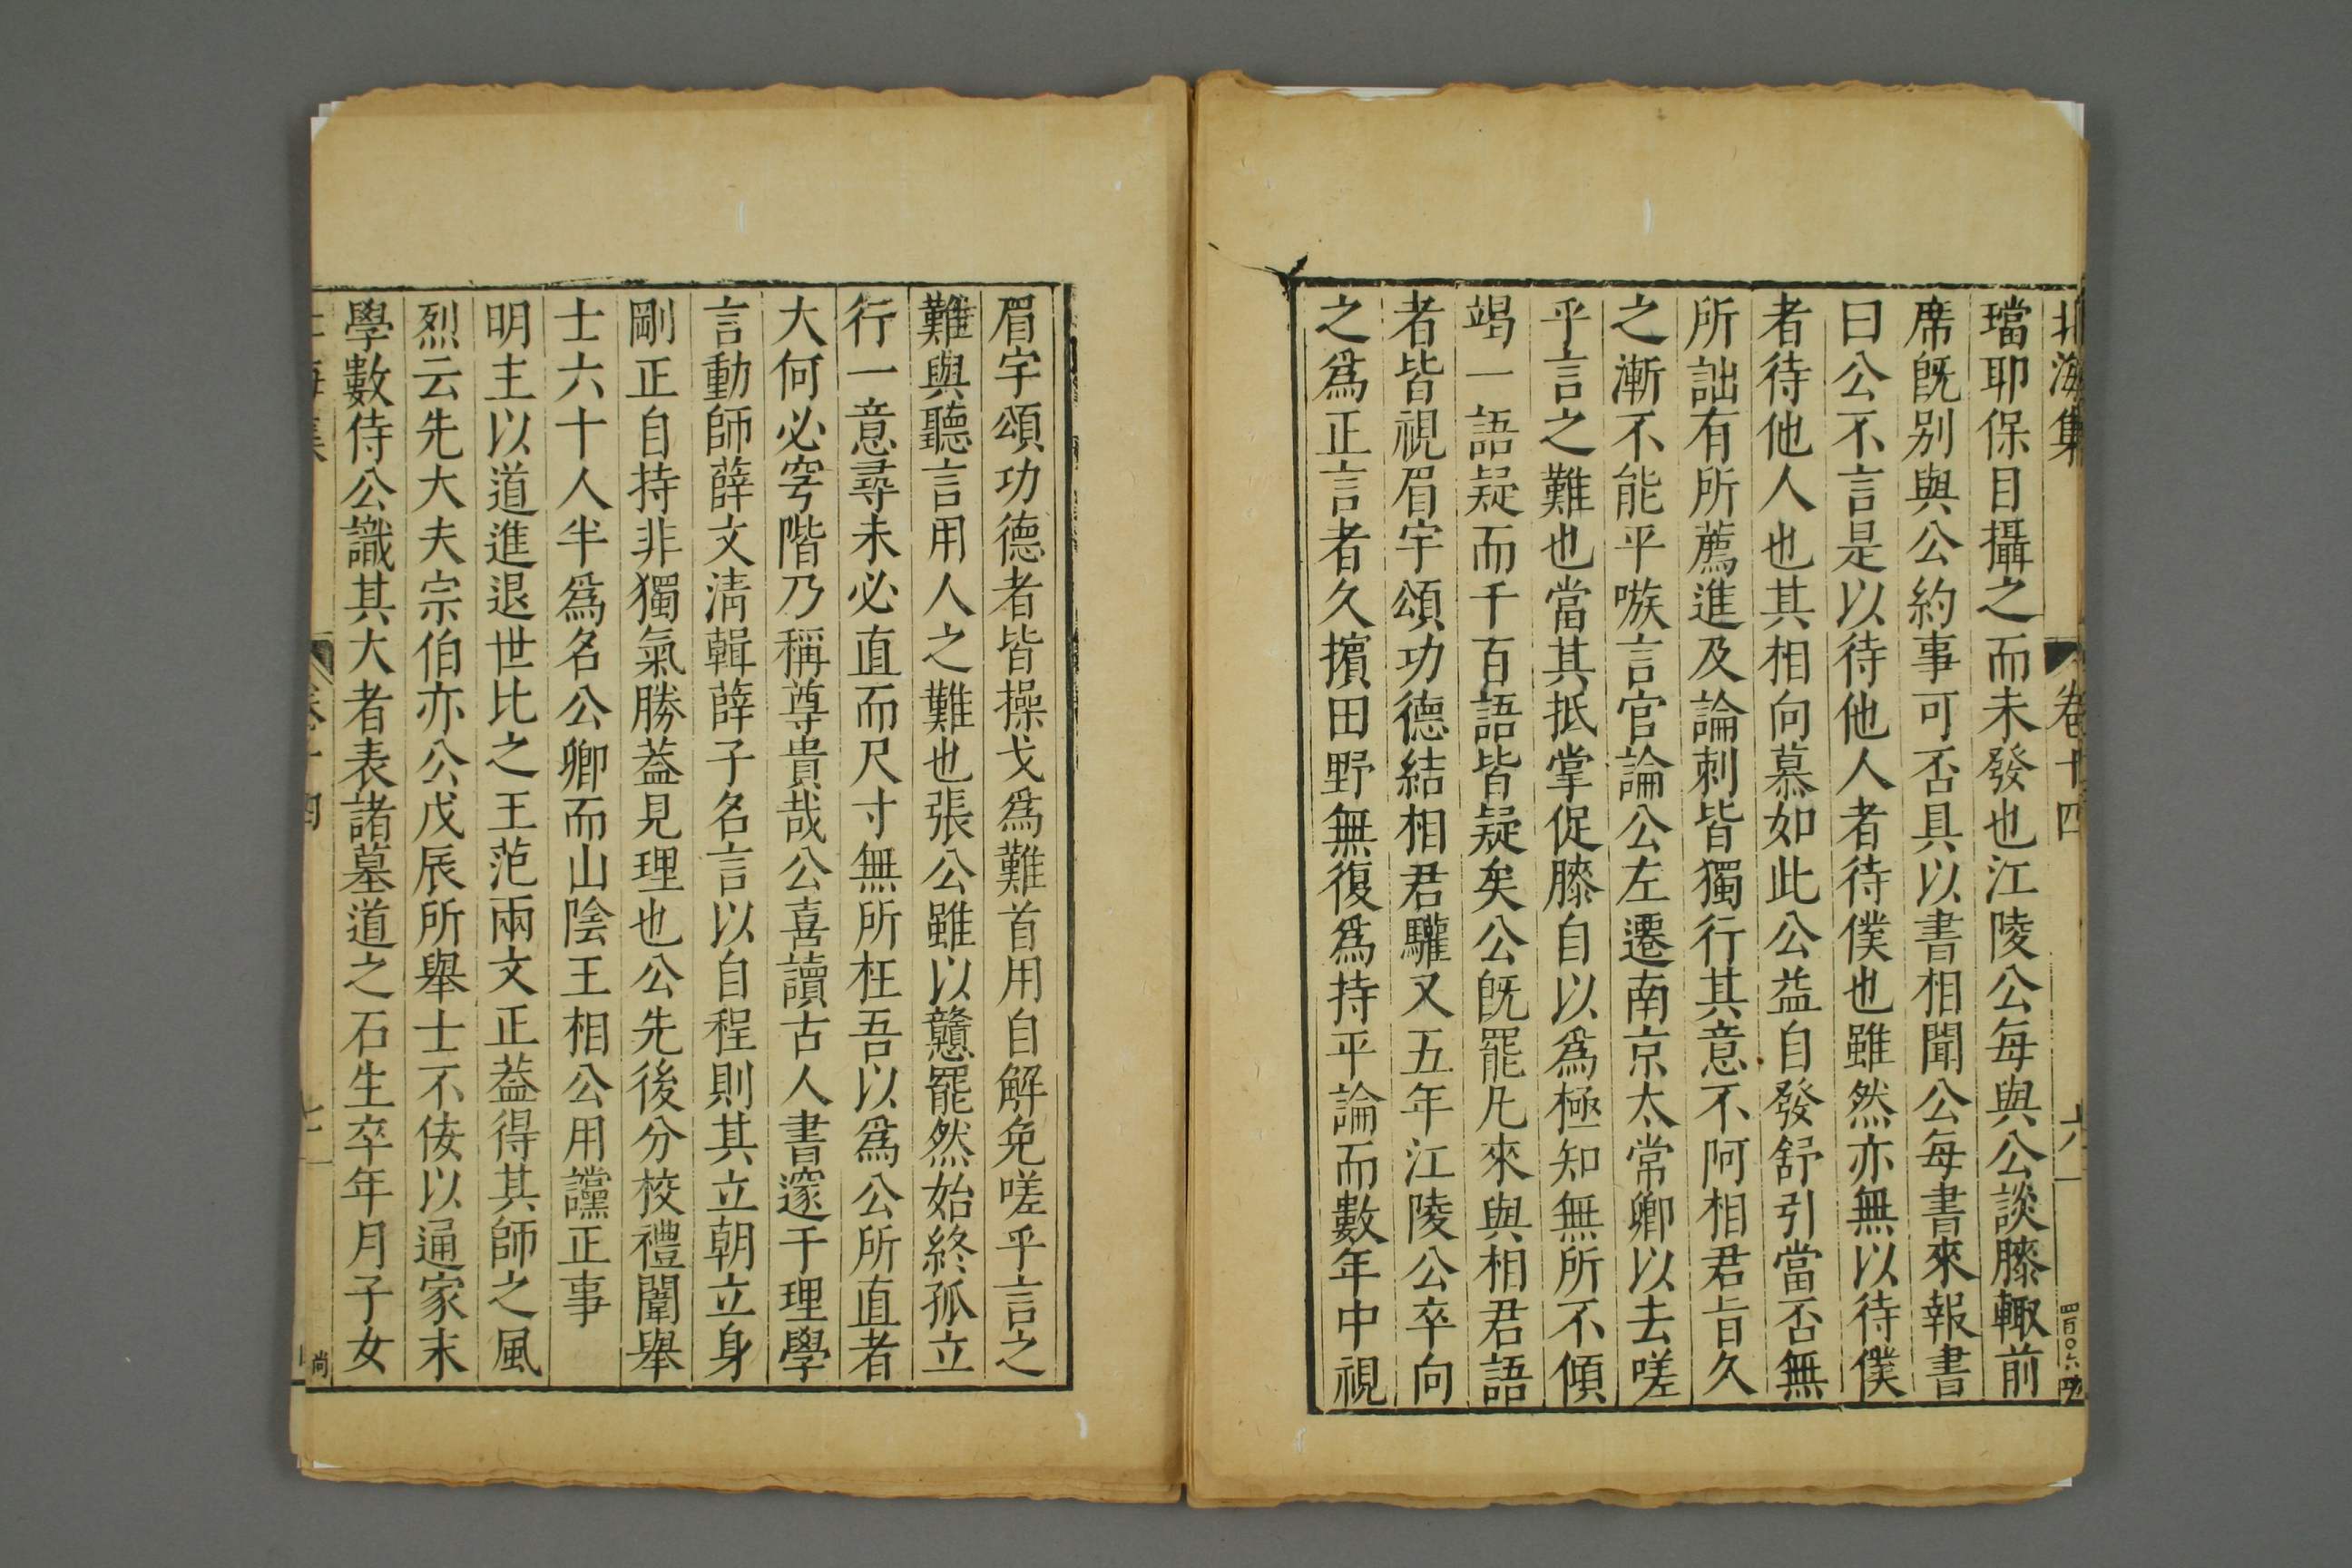 北海集 卷十四 六
璫耶保目攝之而未發也江陵公每與公談膝輙前
席旣别與公約事可否具以書相聞公每書來報書
曰公不言是以待他人者待僕也雖然亦無以待僕
者待他人也其相向慕如此公益自發舒引當否無
所詘有所薦進及論刺皆獨行其意不阿相君旨久
之漸不能平嗾言官論公左遷南京太常卿以去嗟
乎言之難也當其抵掌促膝自以爲極知無所不傾
竭一語疑而千百語皆疑矣公旣罷凡來與相君語
者皆視眉宇頌功德結相君驩又五年江陵公卒向
之爲正言者久擯田野無復爲持平論而數年中視
眉宇頌功德者皆操戈爲難首用自解免嗟乎言之
難與聽言用人之難也張公雖以戇罷然始終孤立
行一意尋未必直而尺寸無所枉吾以爲公所直者
大何必穹階乃稱尊貴哉公喜讀古人書邃于理學
言動師薛文淸輯薛子名言以自程則其立朝立身
剛正自持非獨氣勝葢見理也公先後分校禮闈舉
士六十人半爲名公卿而山陰王相公用讜正事
明主以道進退世比之王范兩文正葢得其師之風
烈云先大夫宗伯亦公戊辰所舉士不佞以通家末
學數侍公識其大者表諸墓道之石生卒年月子女
卷十四 七
尚